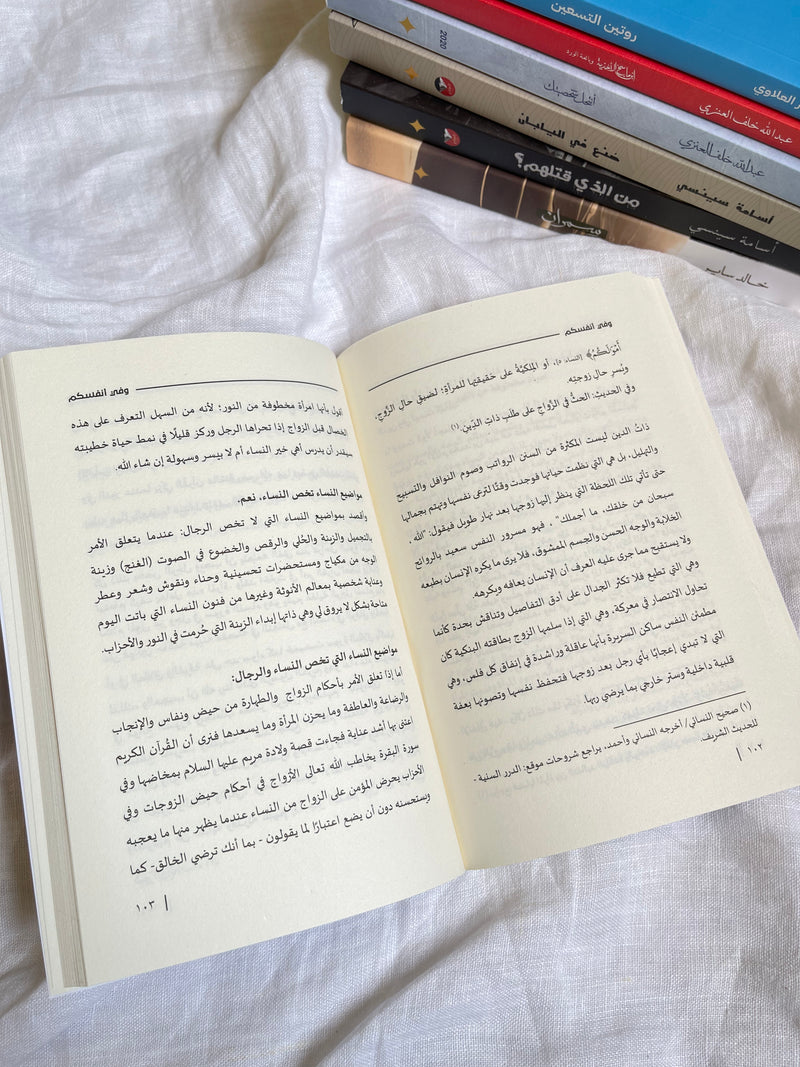 روتين التسعين
العلاوي
عبدالله خلف العنزي
2020
عبدالله خلف العنزي
صنع في اليابان
أسامة سينسي
من الذي قتلهم؟
أسامة سينسي
خالد ساير
وفي أنفسكم
أَمْوَٰلَكُمُ﴾ (النساء: ٥)، أو الملكيَّةُ على حَقيقتِها للمرأةِ؛ لضيقِ حالِ الزَّوجِ،
ويُسرِ حالِ زوجتِه.
وفي الحديثِ: الحثُّ في الزَّواجِ على طلَبِ ذاتِ الدِّينِ. (١)
ذاتُ الدين ليست المكثرة من السنن الرواتب وصوم النوافل والتسبيح
والتهليل، بل هي التي نظمت حياتها فوجدت وقتًا لترى نفسها وتهتم بجمالها
حتى تأتي تلك اللحظة التي ينظر إليها زوجها بعد نهار طويل فيقول: "الله،
سبحان من خلقك، ما أجملك"، فهو مسرور النفس سعيد بالروائح
الخلابة والوجه الحسن والجسم الممشوق، فلا يرى ما يكره الإنسان بطبعه
ولا يستقبح مما جرى عليه العرف أن الإنسان يعافه ويكرهه.
وهي التي تطيع فلا تكثر الجدال على أدق التفاصيل وتناقش بحدة كأنما
تحاول الانتصار في معركة، وهي التي إذا سلمها الزوج بطاقته البنكية كان
مطمئن النفس ساكن السريرة بأنها عاقلة وراشدة في إنفاق كل فلس، وهي
التي لا تبدي إعجابًا بأي رجل بعد زوجها فتحفظ نفسها وتصونها بعفة
قلبية داخلية وستر خارجي بما يرضي ربها.
(١) صحيح النسائي/ أخرجه النسائي وأحمد، يراجع شروحات موقع: الدرر السنية -
للحديث الشريف.
١٠٢
وفي أنفسكم
أقول بأنها امرأة مخطوفة من النور؛ لأنه من السهل التعرف على هذه
الخصال قبل الزواج إذا تحراها الرجل وركز قليلًا في نمط حياة خطيبته
سيقدر أن يدرس أهي خير النساء أم لا بيسر وسهولة إن شاء الله.
مواضيع النساء تخص النساء، نعم.
وأقصد بمواضيع النساء التي لا تخص الرجال: عندما يتعلق الأمر
بالتجميل والزينة والحُلي والرقص والخضوع في الصوت (الغنج) وزينة
الوجه من مكياج ومستحضرات تحسينية وحناء ونقوش وشعر وعطر
وعناية شخصية بمعالم الأنوثة وغيرها من فنون النساء التي باتت اليوم
متاحة بشكل لا يروق لي وهي ذاتها إبداء الزينة التي حُرمت في النور والأحزاب.
مواضيع النساء التي تخص النساء والرجال:
أما إذا تعلق الأمر بأحكام الزواج والطهارة من حيض ونفاس والإنجاب
والرضاعة والعاطفة وما يحزن المرأة وما يسعدها فترى أن القُرآن الكريم
اعتنى بها أشد عناية فجاءت قصة ولادة مريم عليها السلام بمخاضها وفي
سورة البقرة يخاطب الله تعالى الأزواج في أحكام حيض الزوجات وفي
الأحزاب يحرض المؤمن على الزواج من النساء عندما يظهر منها ما يعجبه
ويستحسنه دون أن يضع اعتبارًا لما يقولون - بما أنك ترضي الخالق- كما
١٠٣